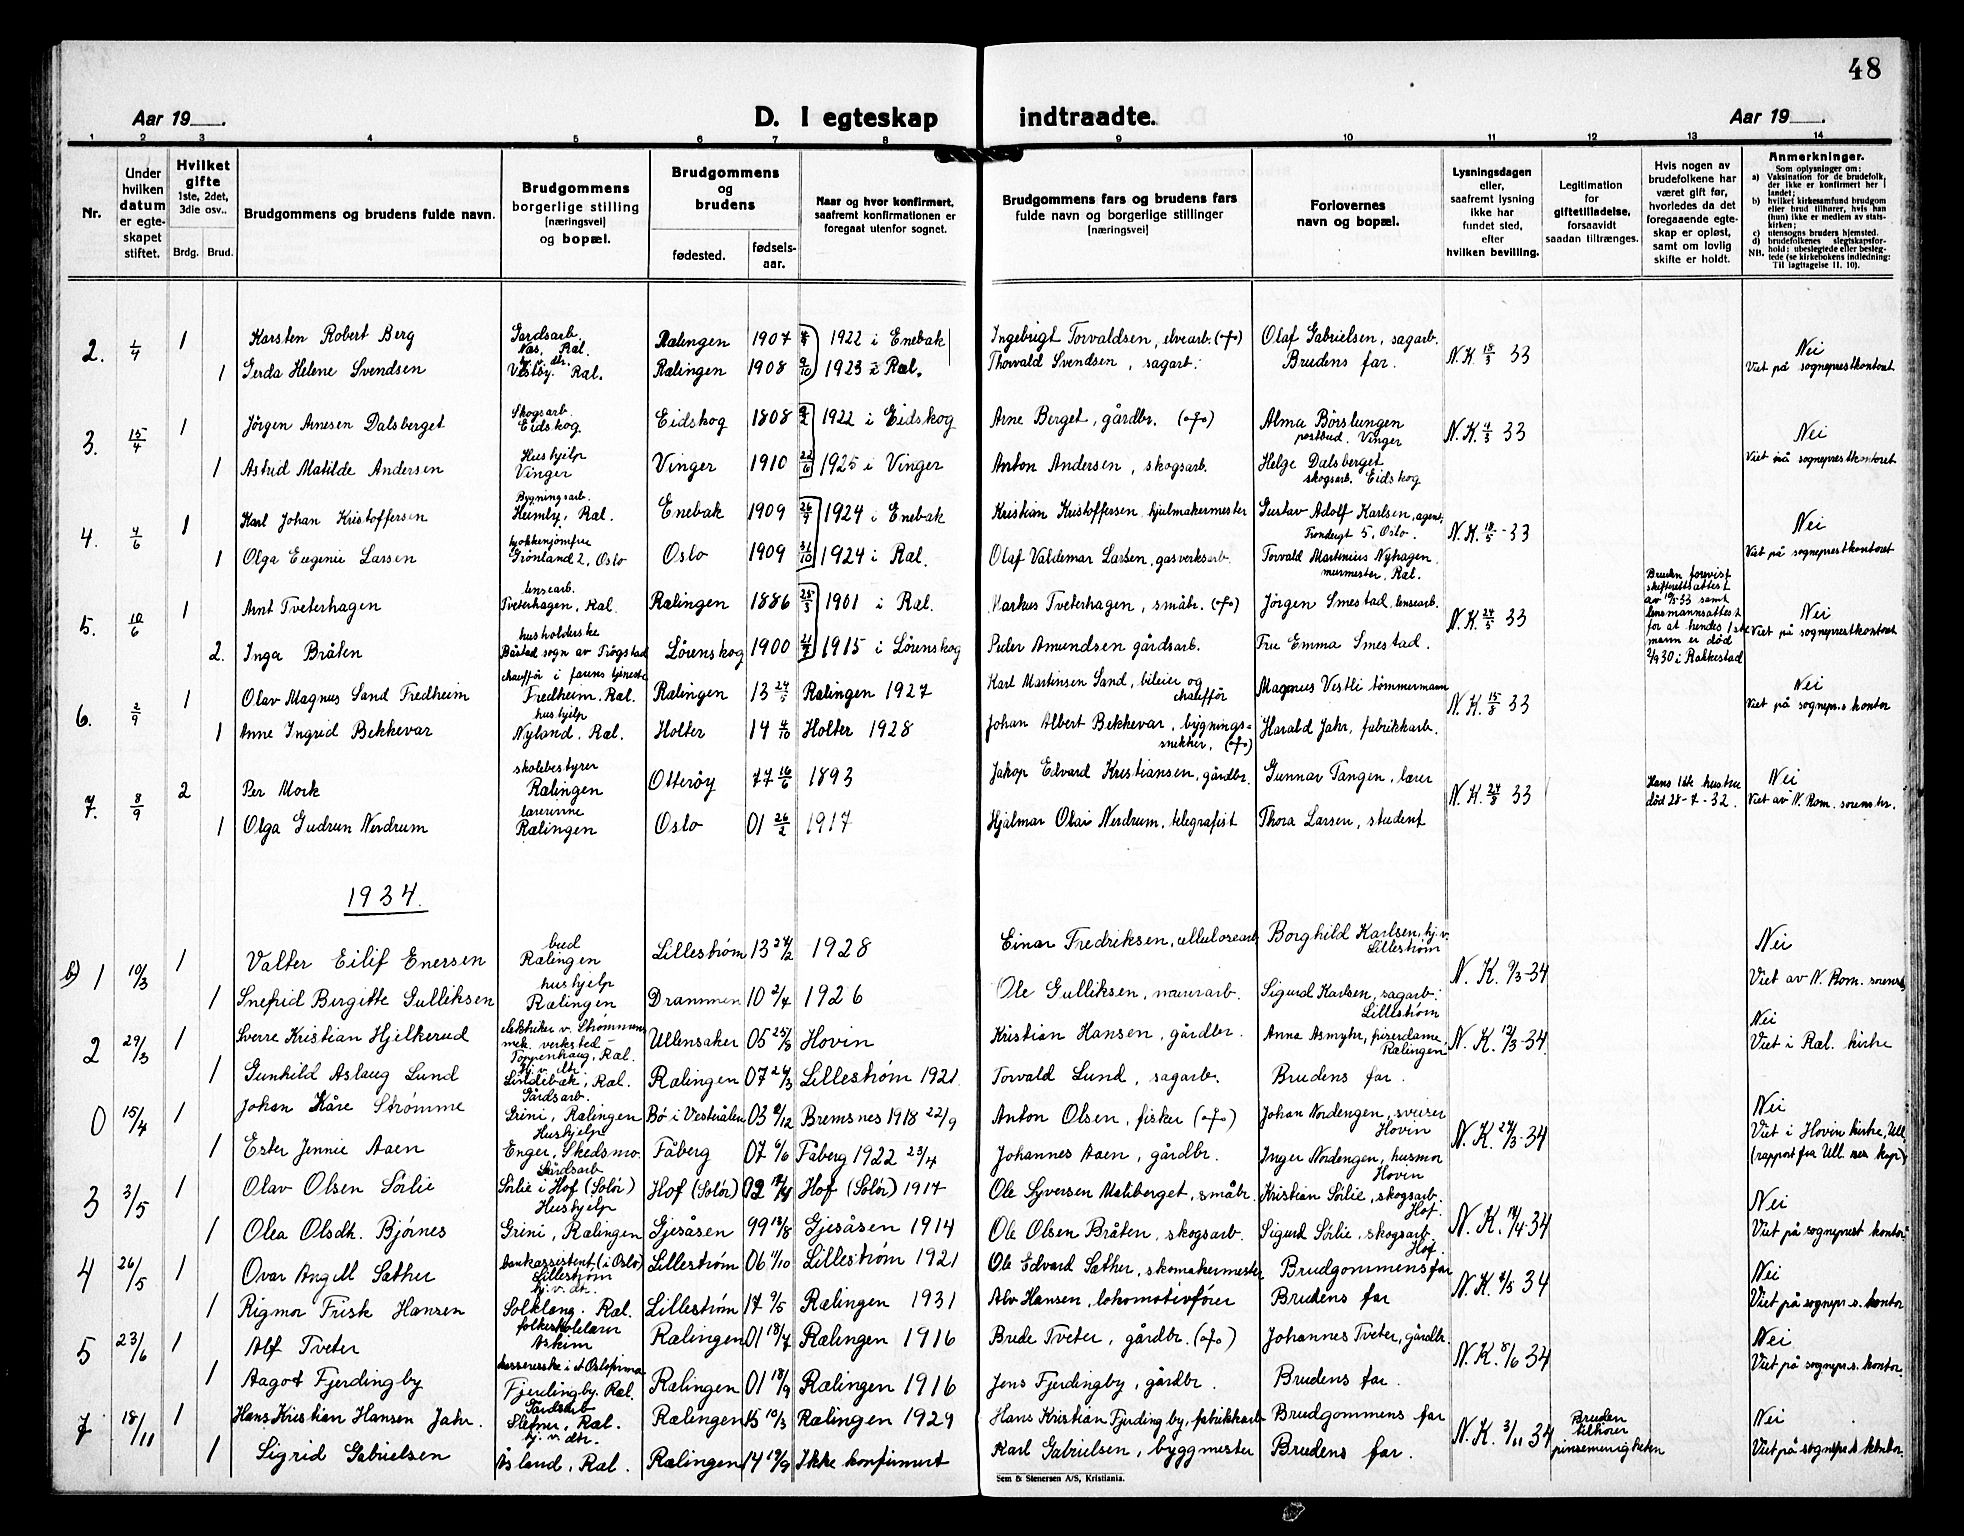 48
Aar 19____. D. I egteskap indtraadte. Aar 19____.
1 2 3 4 5 6 7 8 9 10 11 12 13 14
Nr.
Under hvilken datum er egteskapet stiftet.
Hvilket gifte 1ste, 2det, 3die osv..
Brdg. Brud.
Brudgommens og brudens fulde navn.
Brudgommens borgerlige stilling [næringsvei] og bopæl.
Brudgommens og brudens
fødested. fødsels-aar.
Naar og hvor konfirmert, saafremt konfirmationen er foregaat utenfor sognet.
Brudgommens fars og brudens fars fulde navn og borgerlige stillinger [næringsvei]
Forlovernes navn og bopæl.
Lysningsdagen eller, saafremt lysning ikke har fundet sted, efter hvilken bevilling.
Legitimation for giftetilladelse, forsaavidt saadan tiltrænges.
Hvis nogen av brudefolkene har været gift før, hvorledes da det foregaaende egteskap er opløst, samt om lovlig skifte er holdt.
Anmerkninger.
Som oplysninger om:
a) Vaksination for de brudefolk, der ikke er konfirmert her i landet;
b) hvilket kirkesamfund brudgom eller brud tilhører, hvis han (hun) ikke er medlem av statskirken;
c) utensogns bruders hjemsted.
d) brudefolkenes slegtskapsforhold: ubeslegtede eller beslegtede (se kirkebokens indledning:
NB. Til iagttagelse II. 10).
2. 1/4 1 Karsten Robert Berg Gardsarb. Nas, Ral. Rælingen 1907 1922 i Enebak Ingebrigt Torvaldsen, elvearb. (o†o) Olaf Gabrielsen, sagarb. N.K. 18/3 33 Nei
1 Gerda Helene Svendsen hj. v. dr. Vestby. Ral. Rælingen 1908 9/10 1923 i Ræl. Thorvald Svendsen, sagarb. Brudens far. Viet på sogneprestkontoret
3. 15/4 1 Jörgen Arnesen Dalsberget Skogsarb. Eidskog Eidskog 1808 1922 i Eidskog Arne Berget, gårdbr. (o†o) Alma Börslungen postbud. Vinger N.K. 33 Nei
1 Astrid Matilde Andersen Hushjelp Vinger Vinger 1910 22/6 1925 i Vinger Anton Andersen, skogsarb. Helge Dalsberget skogsarb. Eidskog Viet på sogneprestkontoret
4. 4/6 1 Karl Johan Kristoffersen Bygningsarb. Heimly, Ral. Enebak 1909 26/9 1924 i Enebak Kristian Kristoffersen hjulmakermester Gustav Adolf Karlsen, agent, Trondergt 5, Oslo. N.K. 18/5 - 33 Nei
1 Olga Eugenie Larsen kjökkenjomfru Grönland 2, Oslo Oslo 1909 31/10 1924 i Ral. Olaf Valdemar Larsen, gasverksarb. Torvald Martinius Nyhagen murmester, Ral. Viet på sogneprestkontoret
5. 10/6 1 Arnt Tveterhagen lensearb. Tveterhagen, Ral. Rælingen 1886 1901 i Ræl. Markus Tveterhagen, småbr. (o†o) Jörgen Smestad, lensearb. N.K. 24/5 33 Bruden forevist skifterettsattest av 10/5-33 samt lensmannsattest for at hendes 1ste mann er död 2/9 30 i Rakkestad Nei
2. Inga Bråten husholderske Båstad sogn av Trögstad Lörenskog 1900 1915 i Lörenskog Peder Amundsen gårdsarb. Fru Emma Smestad. Viet på sogneprestkontoret
6. 2/9 1 Olav Magnus Sand Fredheim chaufför i farens tjeneste Fredheim. Ral. Rælingen 13 24/5 Rælingen 1927 Karl Martinsen Sand, bileier og chauffør Magnus Vestli tömmermann N.K. 15/8 33 Nei
1 Anne Ingrid Bekkevar hushjelp Nyland, Ral. Holter 14 4/10 Holter 1928 Johan Albert Bekkevar, bygnings-snekker. (o†o) Harald Jahr, fabrikkarb. Viet på sognepr.s kontor
7. 8/9 2 Per Mork skolebestyrer Rælingen Otteröy 77 16/6 1893 Jakop Edvard Kristiansen, gårdbr. Gunnar Tangen, lærer N.K. 24/8 33 Hans 1ste hustru död 28-7-32. Nei
1 Olga Gudrun Nerdrum lærerinne Rælingen Oslo 01 26/2 1917 Hjalmar Olai Nerdrum, telegrafist Thora Larsen, student Viet av N. Rom. sorenskr.
1934.
b) 1 10/3 1 Valter Eilif Enersen bud Rælingen Lillestrøm 13 24/2 1928 Einar Fredriksen, cellulosearb. Borghild Karlsen, hj. v. Lillestrøm N. K. 9/3-34 Nei
1 Snefrid Bergitte Gulliksen hushjelp Rælingen Drammen 10 2/4 1926 Ole Gulliksen, murerarb. Sigurd Karlsen, sagarb. Lillestrøm Viet av N. Rom. sorenskr
2 29/3 1 Sverre Kristian Hjelkerud elektriker v. Strømmens mek. verksted - Toppenhaug, Ral. Ullensaker 05 25/8 Hovin Kristian Hansen, gårdbr. Anna Asmyhr, Rælingen N. K. 12/3-34. Nei
1 Gunhild Aslaug Lund hj. v. dtr. Lindebæk, Ral. Rælingen 07 24/3 Lillestrøm 1921. Torvald Lund, sagarb. Brudens far. Viet i Ræl. kirke
0 15/4 1 Johan Kåre Strømme Gårdsarb. Grini, Rælingen Bø i Vesterålen 03 2/12 Bremsnes 1918 22/9 Anton Olsen, fisker (o†o) Johan Nordengen, sveiser Hovin N. K. 27/3-34 Nei
1 Ester Jennie Aaen Hushjelp Enger, Skedsmo. Fåberg 07 6/6 Fåberg 1922 23/4 Johannes Aaen, gårdbr. Inger Nordengen, husmor Hovin Viet i Hovin kirke, Ull. (rapport fra Ull. res kap)
3 3/5 1 Olav Olsen Sörlie Gårdsarb Sörlie i Hof (Solör) Hof (Solör) 02 17/4 Hof (Solör) 1917 Ole Syversen Maliberget, småbr. Kristian Sörlie, skogsarb. Hof. N. K. 18/4-34 Nei
1 Olea Olsdt. Bjørnes Hushjelp Grini, Rælingen Gjesåsen 99 18/8 Gjesåsen 1914 Ole Olsen Bråten, skogsarb. Sigurd Sörlie, skogsarb. Hof. Viet på sogneprest kontor
4 26/5 1 Ovar Angell Sæther bankassistent (i Oslo) Lillestrøm Lillestrøm 06 11/10 Lillestrøm 1921 Ole Edvard Sæther, skomakermester Brudgommens far N. K. 4/5 34 Nei
1 Rigmor Frisk Hansen hj. v. dtr. Solklang. Ral. Lillestrøm 17 9/5 Rælingen 1931 Alv Hansen, lokomotivfører Brudens far Viet på sognepr.s. kontor
5 23/6 1 Alf Tveter folkeskolelærer Askim Rælingen 01 18/7 Rælingen 1916 Brede Tveter, gårdbr. (o†o) Johannes Tveter, gårdbr. N. K. 8/6 34 Nei
1 Aagot Fjerdingby kassererske i et Oslofirma Fjerdingby. Ral. Rælingen 01 18/9 Rælingen 1916 Jens Fjerdingby, gårdbr. Brudens far. Viet på sognepr.s. kontor.
7 18/11 1 Hans Kristian Hansen Jahr. Gårdsarb Sletner, Ral. Rælingen 15 10/3 Rælingen 1929 Hans Kristian Fjerdingby, fabrikkarb Brudgommens far N. K. 3/11 34 Bruden tilhører pinsemenigheten Nei
1 Sigrid Gabrielsen hj. v. dtr. Åsland, Ral. Rælingen 14 19/9 Ikke konfirmert Karl Gabrielsen, byggmester Brudens far. Viet på sognepr.s kontor.
Sem & Stenersen A/S, Kristiania.